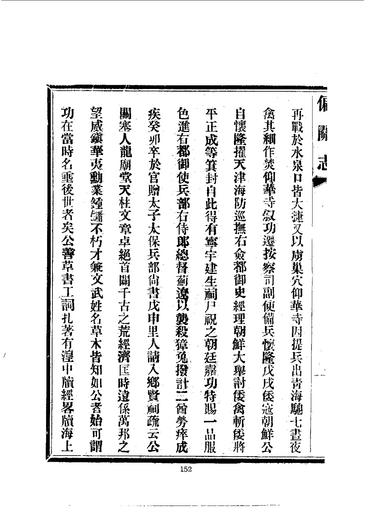 偏關志
再戰於水泉口皆大捷又以虜巢穴仰華寺四提兵出青海馳七晝夜
禽其細作焚仰華寺叙功遷按察司副使備兵懷隆戊戌倭寇朝鮮公
自懷隆擢天津海防巡撫右僉都御史經理朝鮮大舉討倭禽斬倭將
平正成等箕封自此得有寧宇建生祠尸祝之朝廷嘉功特賜一品服
色進右都御使兵部右侍郎總督薊遼以襲殺獐兔撥計二酋勞瘁成
疾癸卯卒於官贈太子太保兵部尙書戊申里人請入鄉賢祠疏云公
關塞人龍廟堂天柱文章卓絕首闢千古之荒經濟匡時遠係萬邦之
望威鎭華夷勳業鐘鏞不朽才兼文武姓名草木皆知如公者始可謂
功在當時名垂後世者矣公善草書工詞扎著有湟中牘經畧牘海上
152